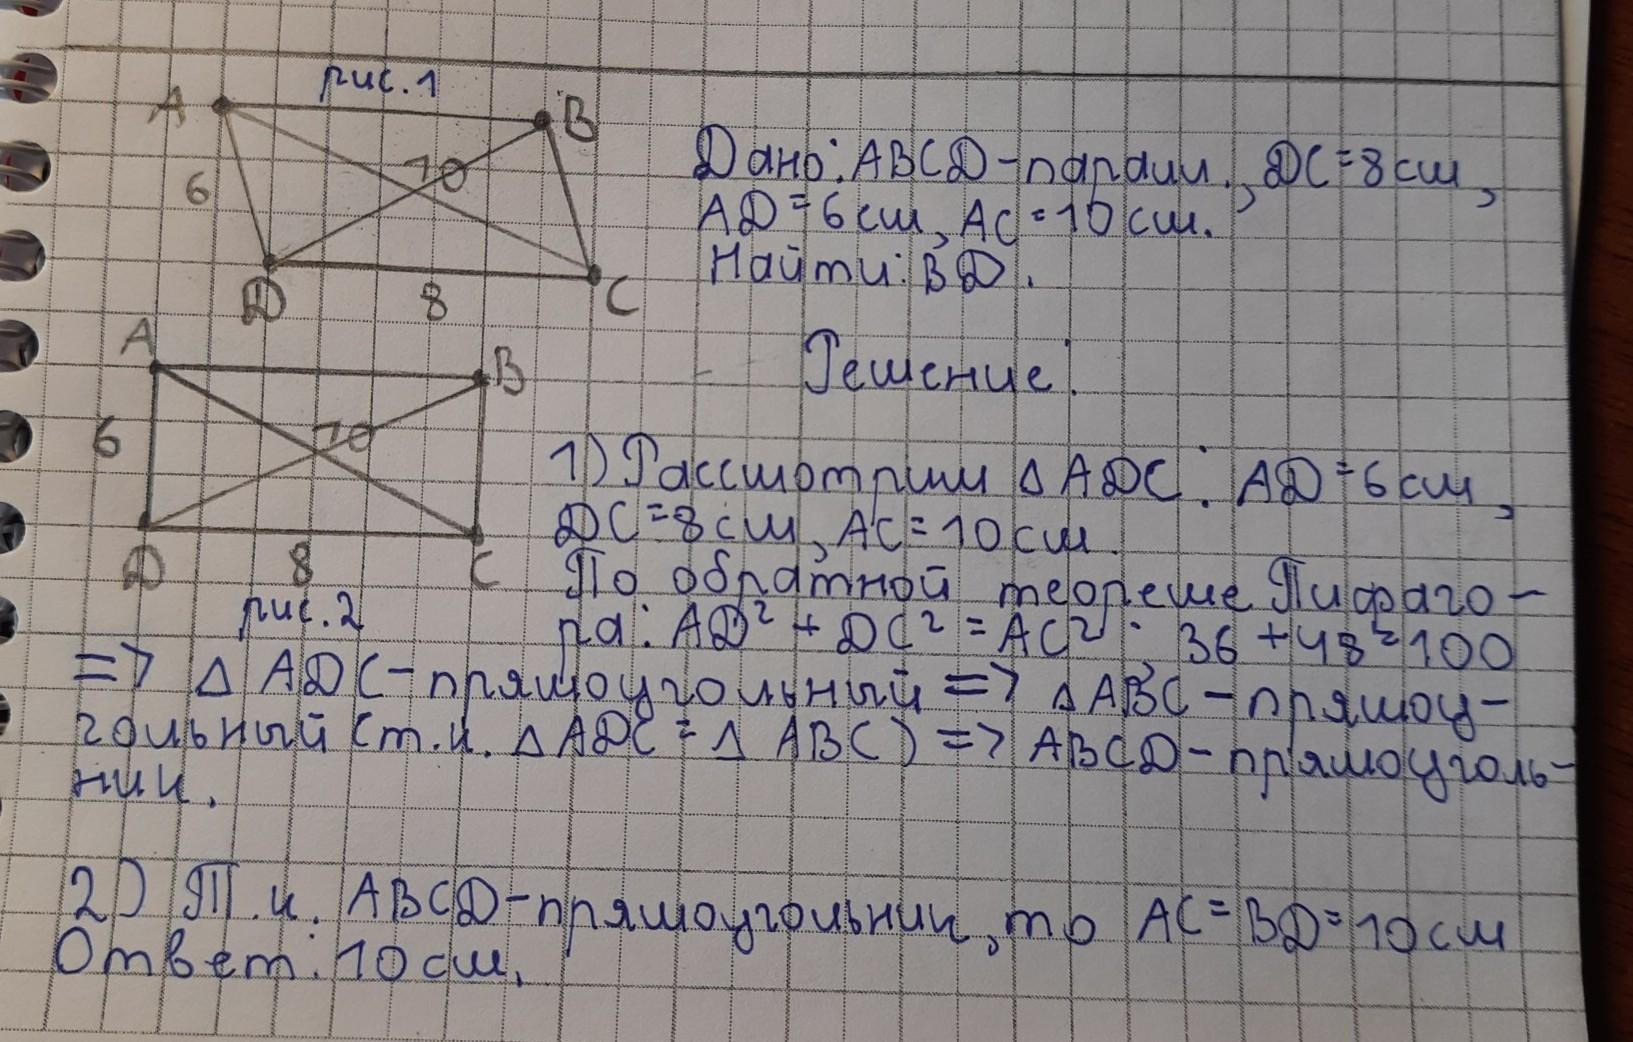 рис.1
A
B
6
10
D
8
C
Дано: ABCD-паралл., DC=8см,
AD=6см, AC=10см.
Найти: BD.
A
B
6
10
D
8
C
рис.2
Решение:
1) Рассмотрим △ADC: AD=6см,
DC=8см, AC=10см.
По обратной теореме Пифаго-
ра: AD²+DC²=AC²; 36+48=100
=> △ADC-прямоугольный => △ABC-прямоу-
гольный (т.к. △ADC=△ABC) => ABCD-прямоуголь-
ник.
2) Т.к. ABCD-прямоугольник, то AC=BD=10см
Ответ: 10см.